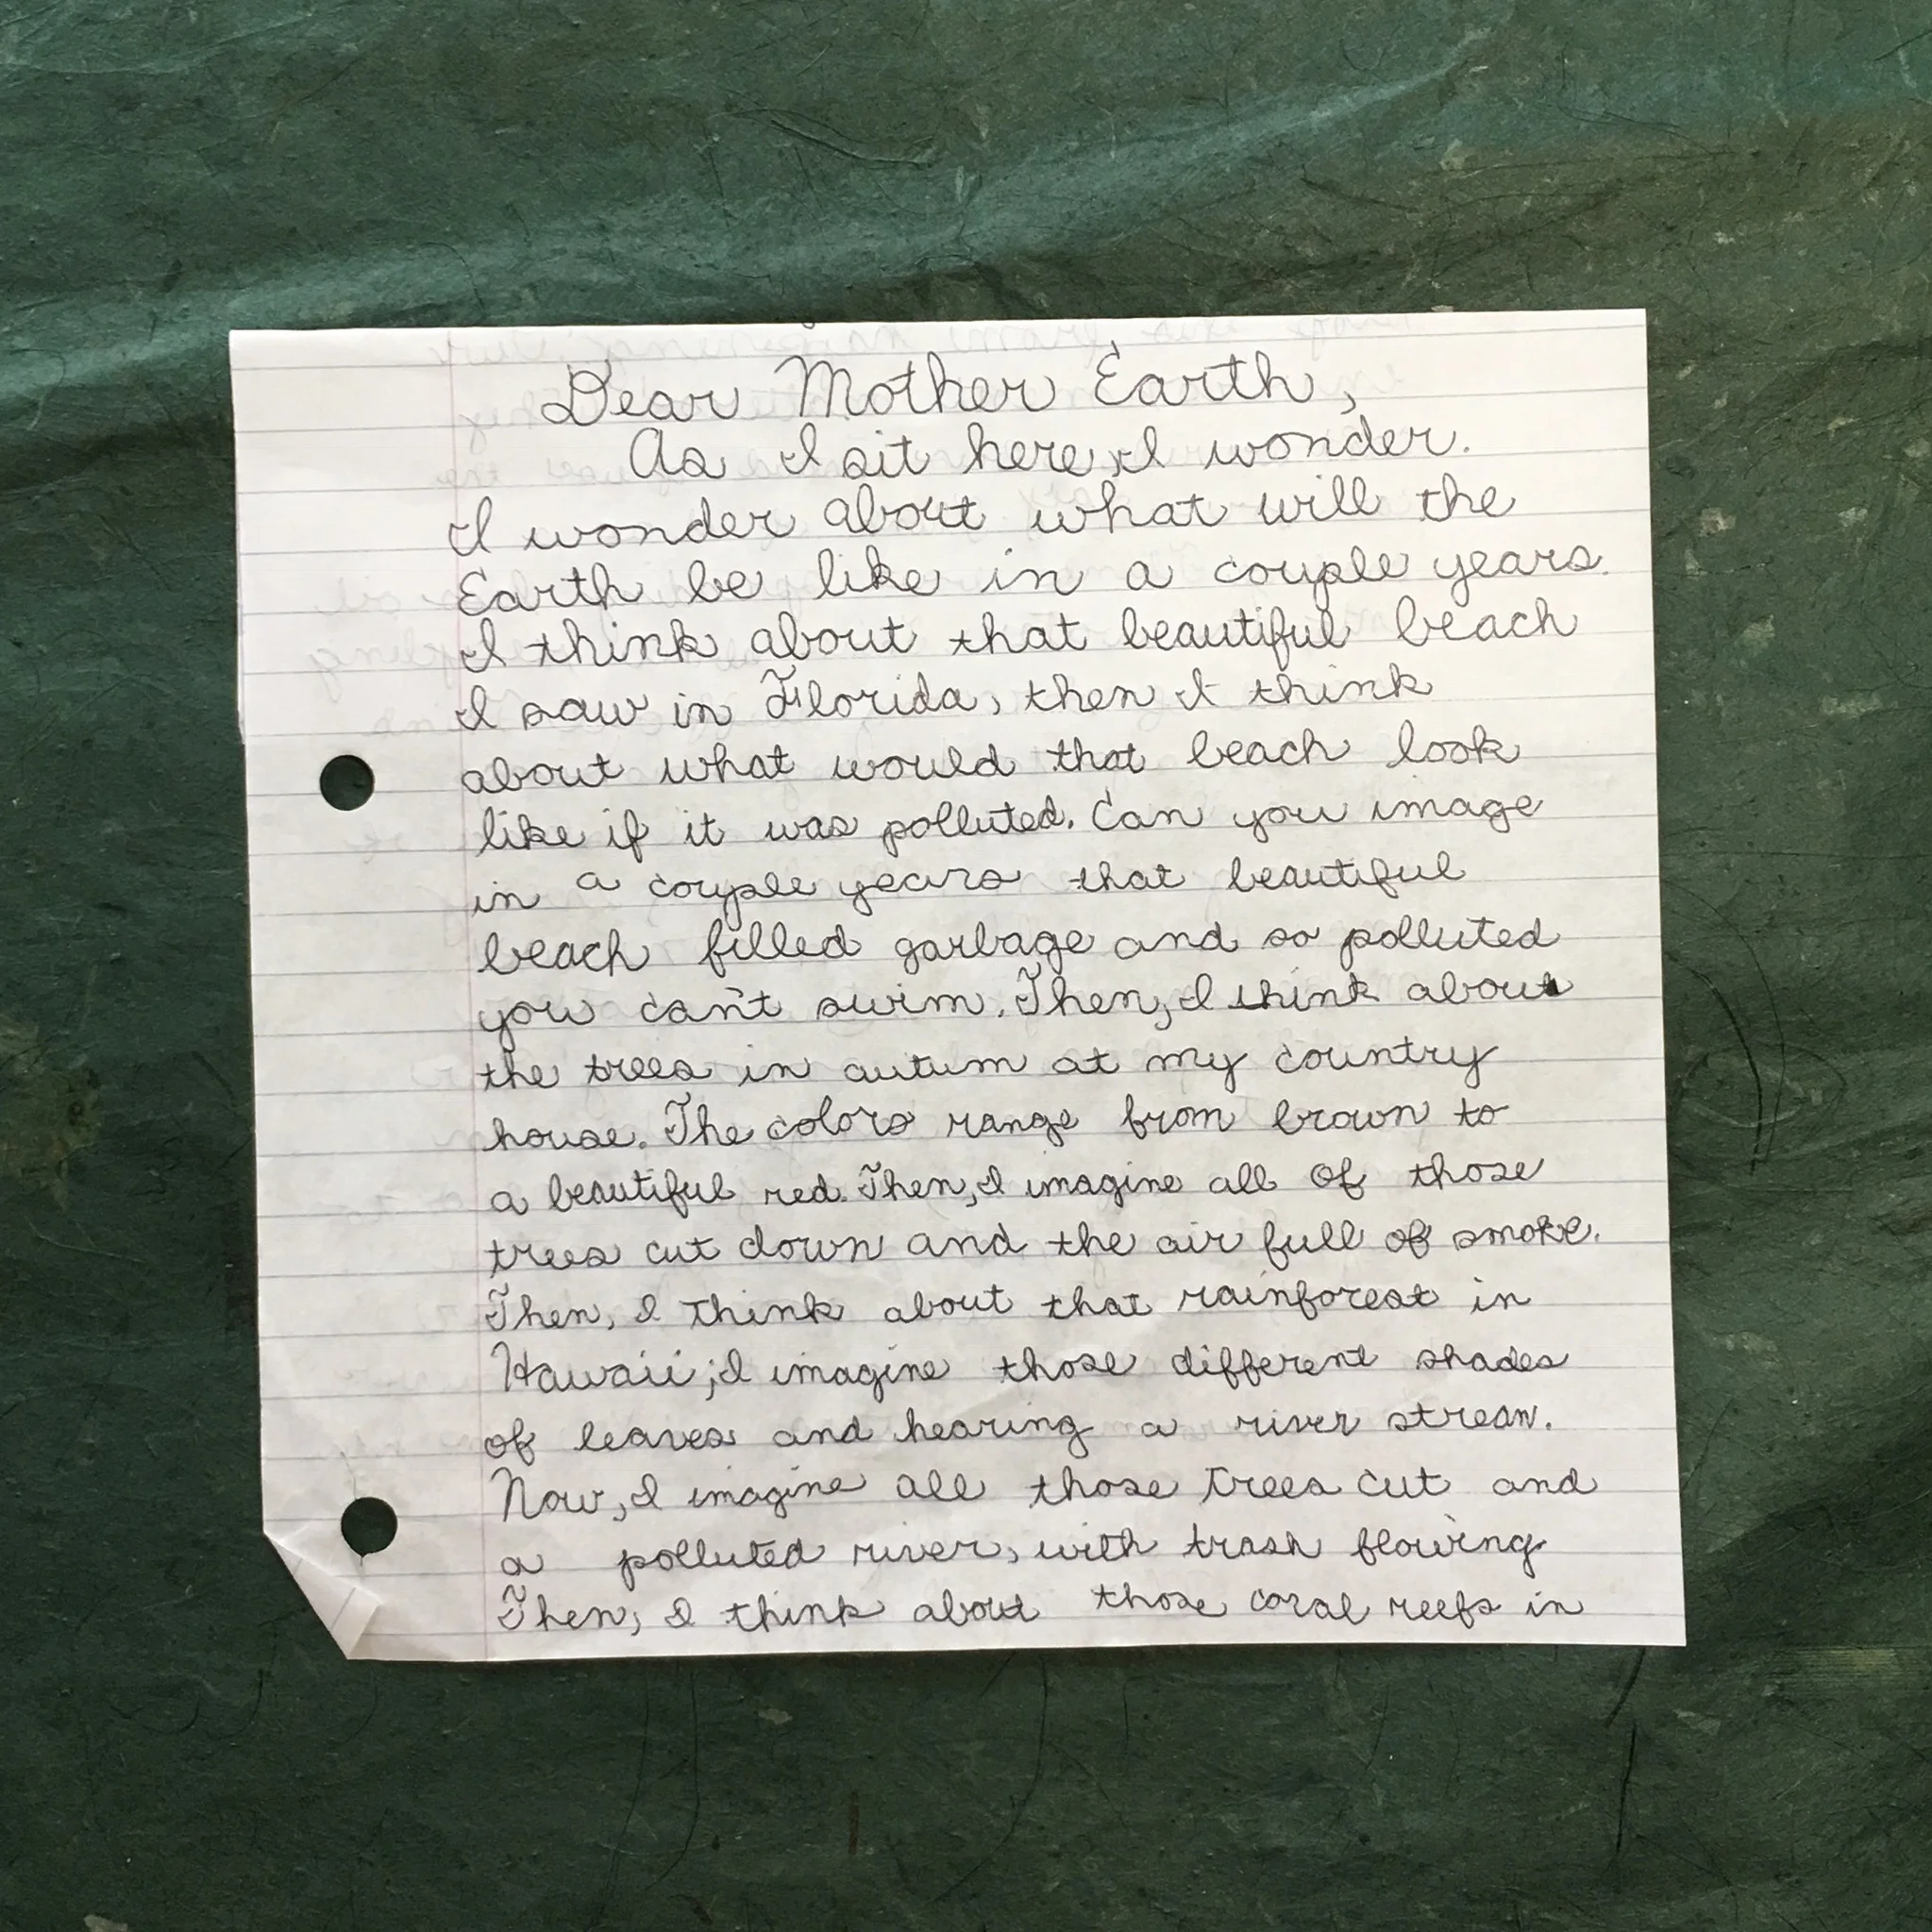 Dear Mother Earth,
As I sit here, I wonder.
I wonder about what will the
Earth be like in a couple years.
I think about that beautiful beach
I saw in Florida, then I think
about what would that beach look
like if it was polluted. Can you image
in a couple years that beautiful
beach filled garbage and so polluted
you can't swim. Then, I think about
the trees in autum at my country
house. The colors range from brown to
a beautiful red. Then, I imagine all of those
trees cut down and the air full of smoke.
Then, I think about that rainforest in
Hawaii; I imagine those different shades
of leaves and hearing a river stream.
Now, I imagine all those trees cut and
a polluted river, with trash flowing.
Then, I think about those coral reefs in